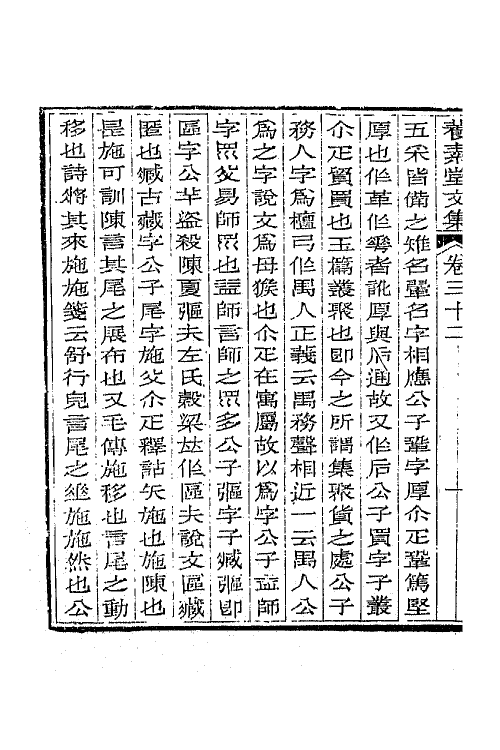 養素堂文集　卷三十二　一
五采皆備之雉名翬名字相應公子鞏字厚尒疋鞏篤堅
厚也作革作翬者訛厚與后通故又作后公子買字子叢
尒疋貿買也玉篇叢聚也卽今之所謂集聚貨之處公子
務人字爲檀弓作禺人正義云禺務聲相近一云禺人公
爲之字說文爲母猴也尒疋在寓屬故以爲字公子益師
字眾父易師眾也益師言師之眾多公子彄字子臧彄卽
區字公羊盜殺陳夏彄夫左氏穀梁竝作區夫說文區臧
匿也臧古藏字公子尾字施父尒疋釋詁矢施也施陳也
昆施可訓陳言其尾之展布也又毛傳施移也言尾之動
移也詩將其來施施箋云舒行皃言尾之繼施施然也公